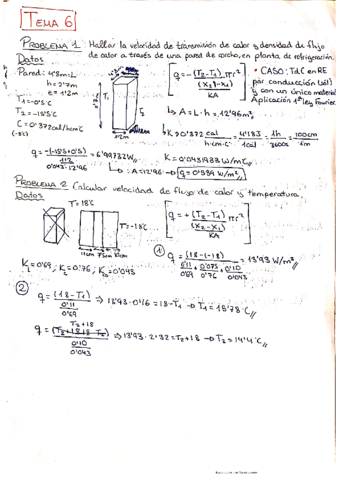 TEMA 6
PROBLEMA 1: Hallar la velocidad de transmisión de calor y densidad de flujo
de calor a través de una pared de corcho, en planta de refrigeración.
Datos
Pared: 4'8m L
h = 2'7m
e = 1'2m
T1 = -0'5°C
T2 = -15'5°C
C = 0'372cal/hcm°C
T1
T2
1'2m
q = -(T2-T1) πr²
(x2-x1)
KA
• CASO: TdC en RE
por conducción (sól)
y con un único material
Aplicación 1ª ley Fourier
↳ A = L·h = 12'96m²
↳ K → 0'372 cal / h·cm·°C · 4'18J / 1cal · 1h / 3600s · 100cm / 1m
q = -(-15'5+0'5) / 1'2 / 0'043·12'96 = 6'99732W
K = 0'0431933 W/m°C
↳ A = 12'96 → q = 0'539 W/m²
PROBLEMA 2: Calcular velocidad de flujo de calor y temperatura.
Datos
T = 18°C
T = -18°C
11cm 7'5cm 10cm
q = + (T2-T1) πr²
(x2-x1)
KA
K1 = 0'69; K2 = 0'76; K3 = 0'043
① q = (18-(-18)) / 0'11 / 0'69 + 0'075 / 0'76 + 0'10 / 0'043 = 13'93 W/m²
② q = (18-T1) / 0'11 / 0'69 ⇒ 13'93·0'16 = 18-T1 → T1 = 15'78°C
T2+18
q = / 0'10 / 0'043 ⇒ 13'93·2'32 = T2+18 → T2 = 14'4°C